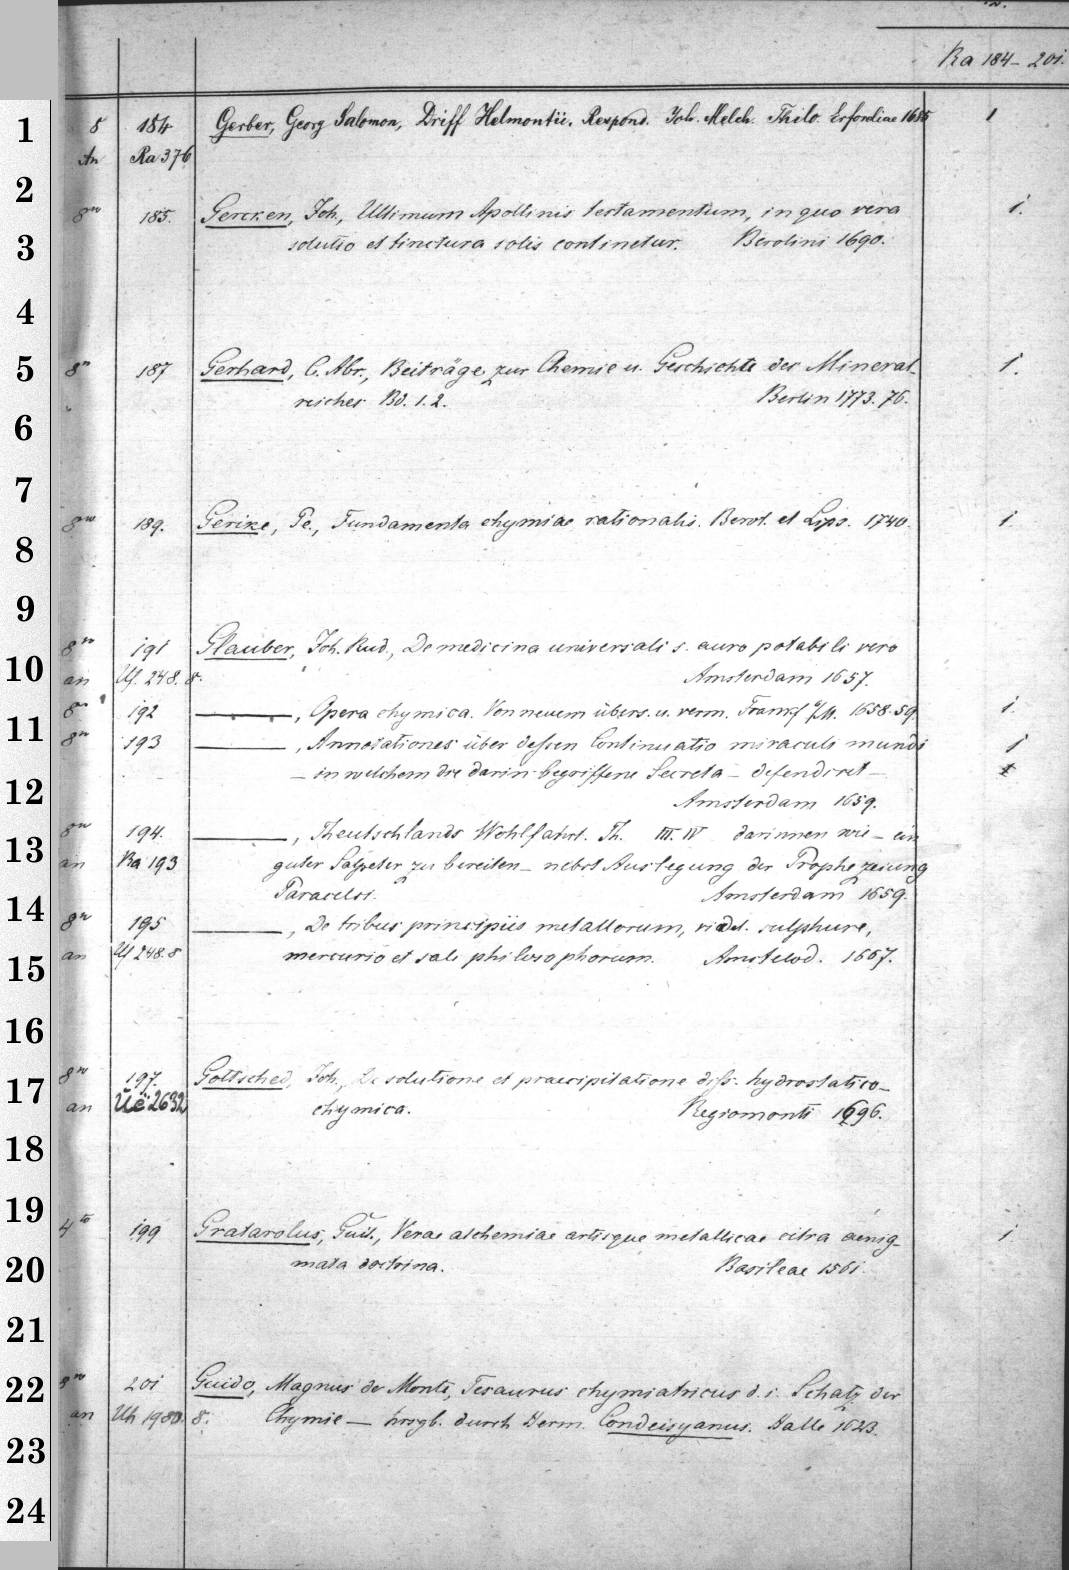 Ra 184-201.
1 8 184 Gerber, Georg Salomon, Driff Helmontii. Respond. Joh. Melch. Thilo. Erfordiae 1685 1
An Ra 376
2 8vo 185. Gercken, Joh., Ultimum Apollinis testamentum, in quo vera 1.
3 solutio et tinctura solis continetur. Berolini 1690.
4
5 8o 187 Gerhard, C. Abr., Beiträge zur Chemie u. Geschichte des Mineral- 1.
reiches Bd. 1. 2. Berlin 1773. 76.
6
7
8vo 189. Gerike, Pe., Fundamenta chymiae rationalis. Berol. et Lips. 1740. 1
8
9
8vo 191 Glauber, Joh. Rud., De medicina universali s. auro potabili vero
10 an Uf. 248. 8. Amsterdam 1657.
8vo 192 ———, Opera chymica. Von neuem übers. u. verm. Frankf a/M. 1658. 59. 1.
11 8vo 193 ———, Annotationes über dessen Continuatio miraculi mundi 1
- in welchem die darin begriffene Secreta - defendiret -
12 Amsterdam 1659.
8vo 194. ———, Theutschlands Wohlfahrt. Th. III. IV darinnen wie - ein
13 an Ra 193 guter Salpeter zu bereiten - nebst Auslegung der Prophezeiung
Paracelsi. Amsterdam 1659.
14 8vo 195 ———, De tribus principiis metallorum, videl. sulphure,
15 an Uf 248. 8 mercurio et sale philosophorum. Amstelod. 1667.
16
8vo 197. Gottsched, Joh., De solutione et praecipitatione diss. hydrostatico-
17 an Üë 2632 chymica. Regiomonti 1696.
18
19
4to 199 Gratarolus, Guil., Verae alchemiae artisque metallicae citra aenig- 1
20 mata doctrina. Basileae 1561.
21
22 8vo 201 Guido, Magnus de Monte, Tesaurus chymiatricus d. i. Schatz der
an Uh 1980. 8. Chymie — hrsgb. durch Herm. Condeesyanus. Halle 1623.
23
24